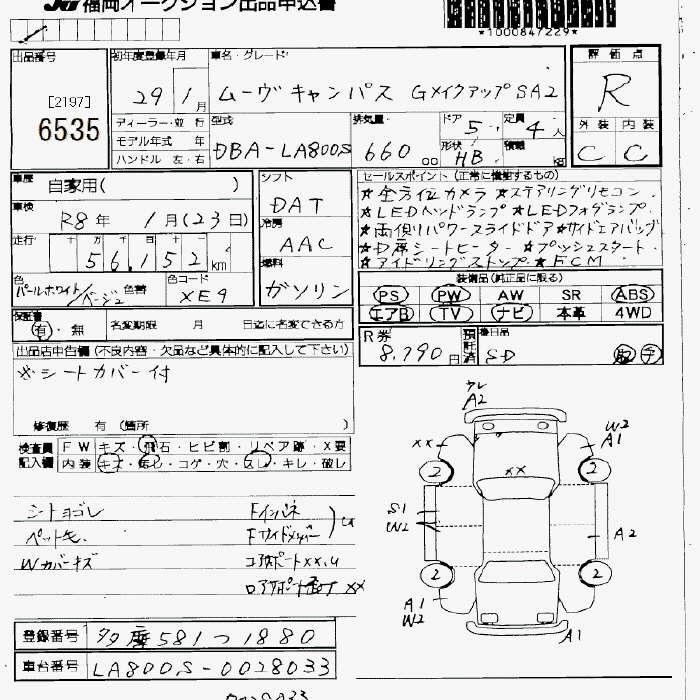 JU 福岡オークション出品申込書
*1000847229*
出品番号
[2197]
6535
初年度登録年月
29 1月
車名・グレード
ムーヴキャンバス GメイクアップSA2
評価点
R
外装 内装
C C
ディーラー・並 行
モデル年式 年
ハンドル 左・右
型式
DBA-LA800S
排気量
660 cc
ドア
5
形状
HB
定員
4人
積載
kg
車歴
自家用( )
車検
R8年 1月(23日)
走行
十 万 千 百 十
56,152 km
色
パールホワイト/ベージュ
色替
色コード
XE9
シフト
DAT
冷房
AAC
燃料
ガソリン
セールスポイント(正常に機能するもの)
★全方位カメラ ★ステアリングリモコン
★LEDヘッドランプ ★LEDフォグランプ
★両側パワースライドドア ★サイドエアバッグ
シートヒーター ★プッシュスタート
★アイドリングストップ ★ECM
装備品(純正品に限る)
PS PW AW SR ABS
エアB TV ナビ 本革 4WD
保証書
有・無
名変期限 月 日迄に名変できる方
R券
8,790円
預託済
後日品
SD
取 手
出品店申告欄(不良内容・欠品など具体的に記入して下さい)
※シートカバー付
修復歴 有(箇所 )
検査員記入欄
FW キズ・飛石・ヒビ割・リペア跡・X要
内装 キズ・汚レ・コゲ・穴・スレ・キレ・破レ
シートヨゴレ
ペット毛
Wカバーキズ
Fインパネ
Fサイドメンバー
コアサポートXX、U
ロアサポート XX
A2
XX
W2
A1
2
2
XX
S1
W2
A2
2
2
A1
W2
A1
登録番号
581 つ 1880
車台番号
LA800S-0028033